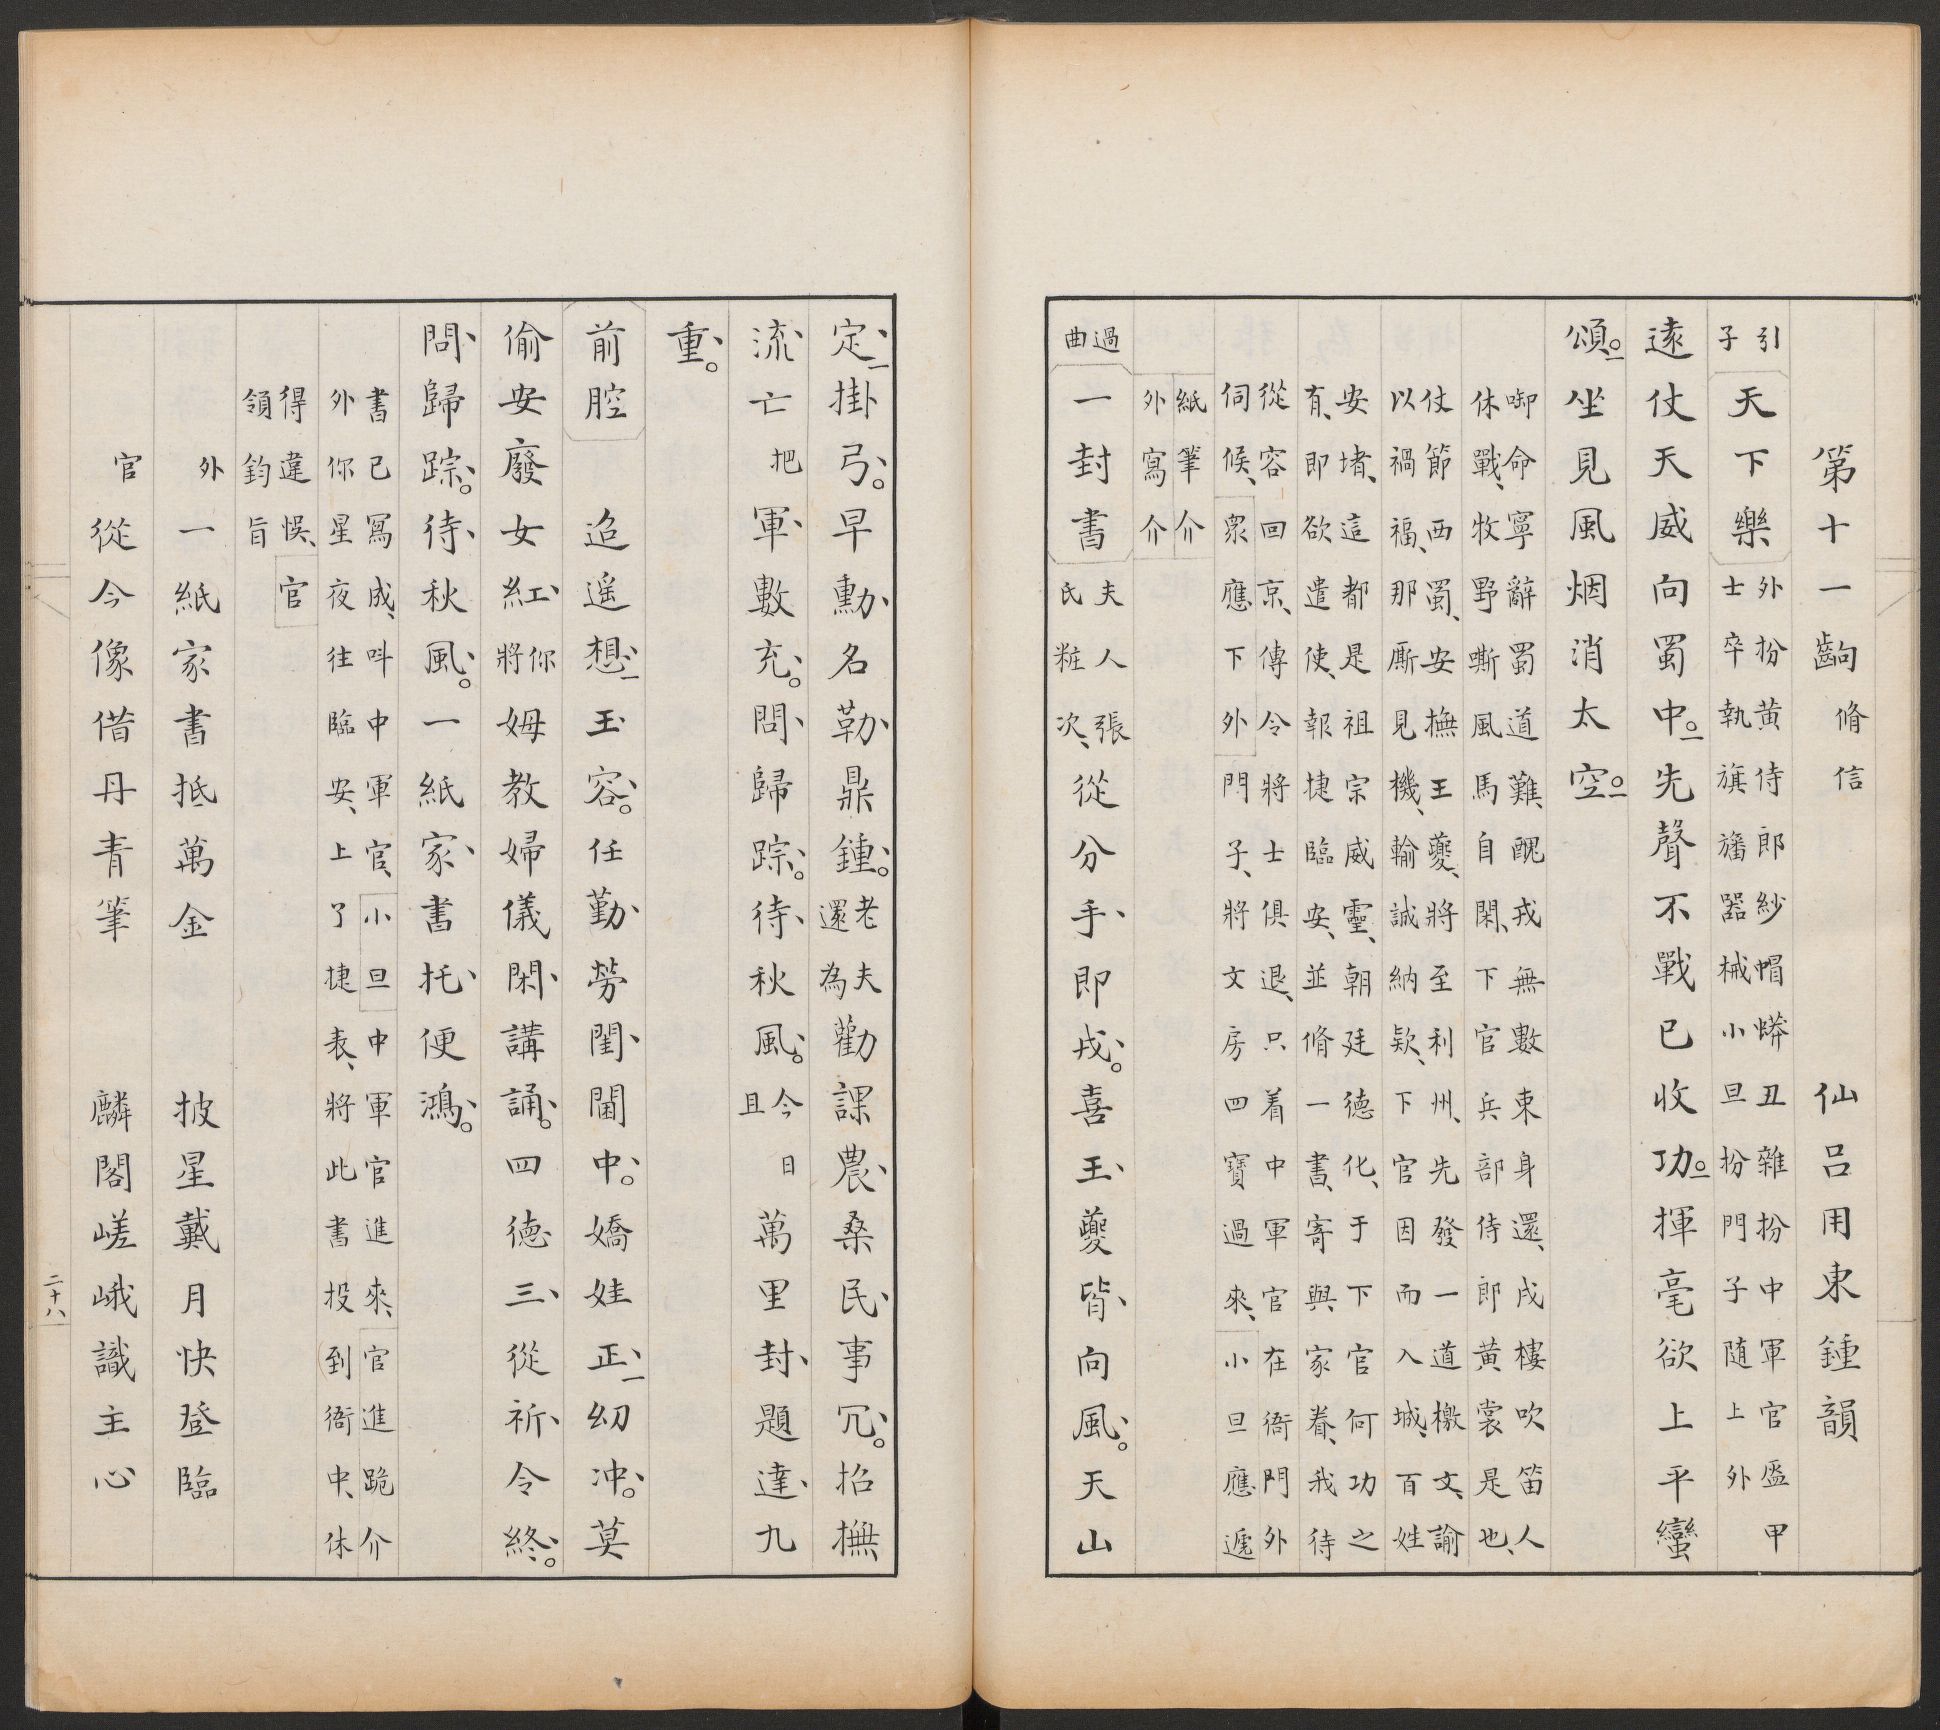 第十一齣 脩信 仙呂用東鍾韻
引子 天下樂 外扮黃侍郎紗帽蟒丑雜扮中軍官盔甲
士卒執旗旛器械小旦扮門子随上外
遠仗天威向蜀中先聲不戰已收功揮毫欲上平蠻
頌坐見風烟消太空
啣命寧辭蜀道難醜戎無數東身還戍樓吹笛人
休戰牧野嘶風馬自閑下官兵部侍郎黃裳是也
仗節西蜀安撫王夔將至利州先發一道檄文諭
以禍福那厮見機輸誠納欵下官因而入城百姓
安堵這都是祖宗威靈朝廷德化于下官何功之
有即欲遣使報捷臨安並脩一書寄與家眷我待
從容回京傳令將士俱退只着中軍官在衙門外
伺候眾應下外門子將文房四寶過來小旦應遞
紙筆介
外寫介
過曲 一封書 夫人張氏粧次從分手即戎喜王夔皆向風天山
定掛弓早勳名勒鼎鍾老夫還為勸課農桑民事冗招撫
流亡把軍數充問歸踪待秋風今日且萬里封題達九
重
前腔 迢遥想玉容任勤勞閨閫中嬌娃正幼冲莫
偷安廢女紅你將姆教婦儀閑講誦四德三從祈令終
問歸踪待秋風一紙家書托便鴻
書已寫成叫中軍官小旦中軍官進來官進跪介
外你星夜往臨安上了捷表將此書投到衙中休
得違悞官
領鈞旨
外一紙家書抵萬金 披星戴月快登臨
官從今像借丹青筆 麟閣嵯峨識主心
二十八